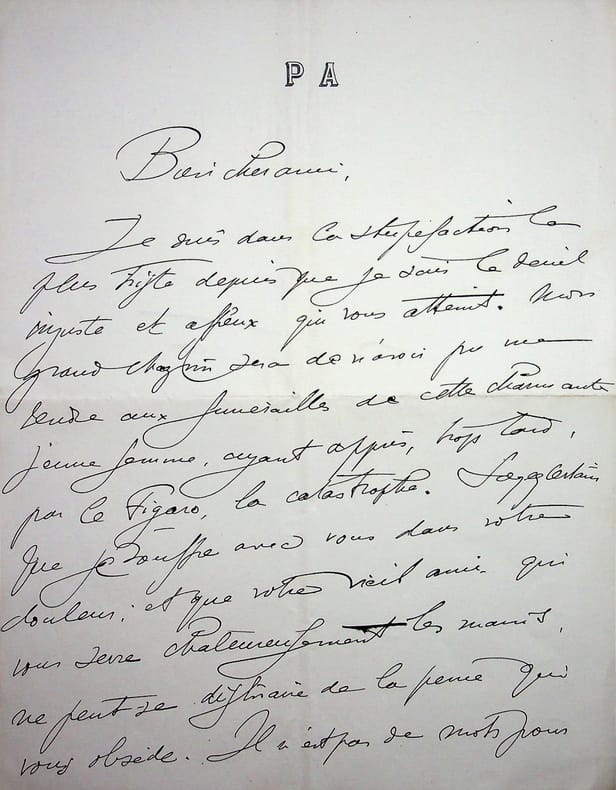 P A
Bien cher ami,
Je suis dans la stupéfaction la
plus triste depuis que je sais le deuil
injuste et affreux qui vous atteint. Mon
grand chagrin sera de n'avoir pu me
rendre aux funérailles de cette charmante
jeune femme, ayant appris, trop tard,
par le Figaro, la catastrophe. Soyez certain
que je souffre avec vous dans votre
douleur; et que votre vieil ami qui
vous serre chaleureusement les mains,
ne peut se distraire de la pensée qui
vous obsède. Il n'est pas de mots pour